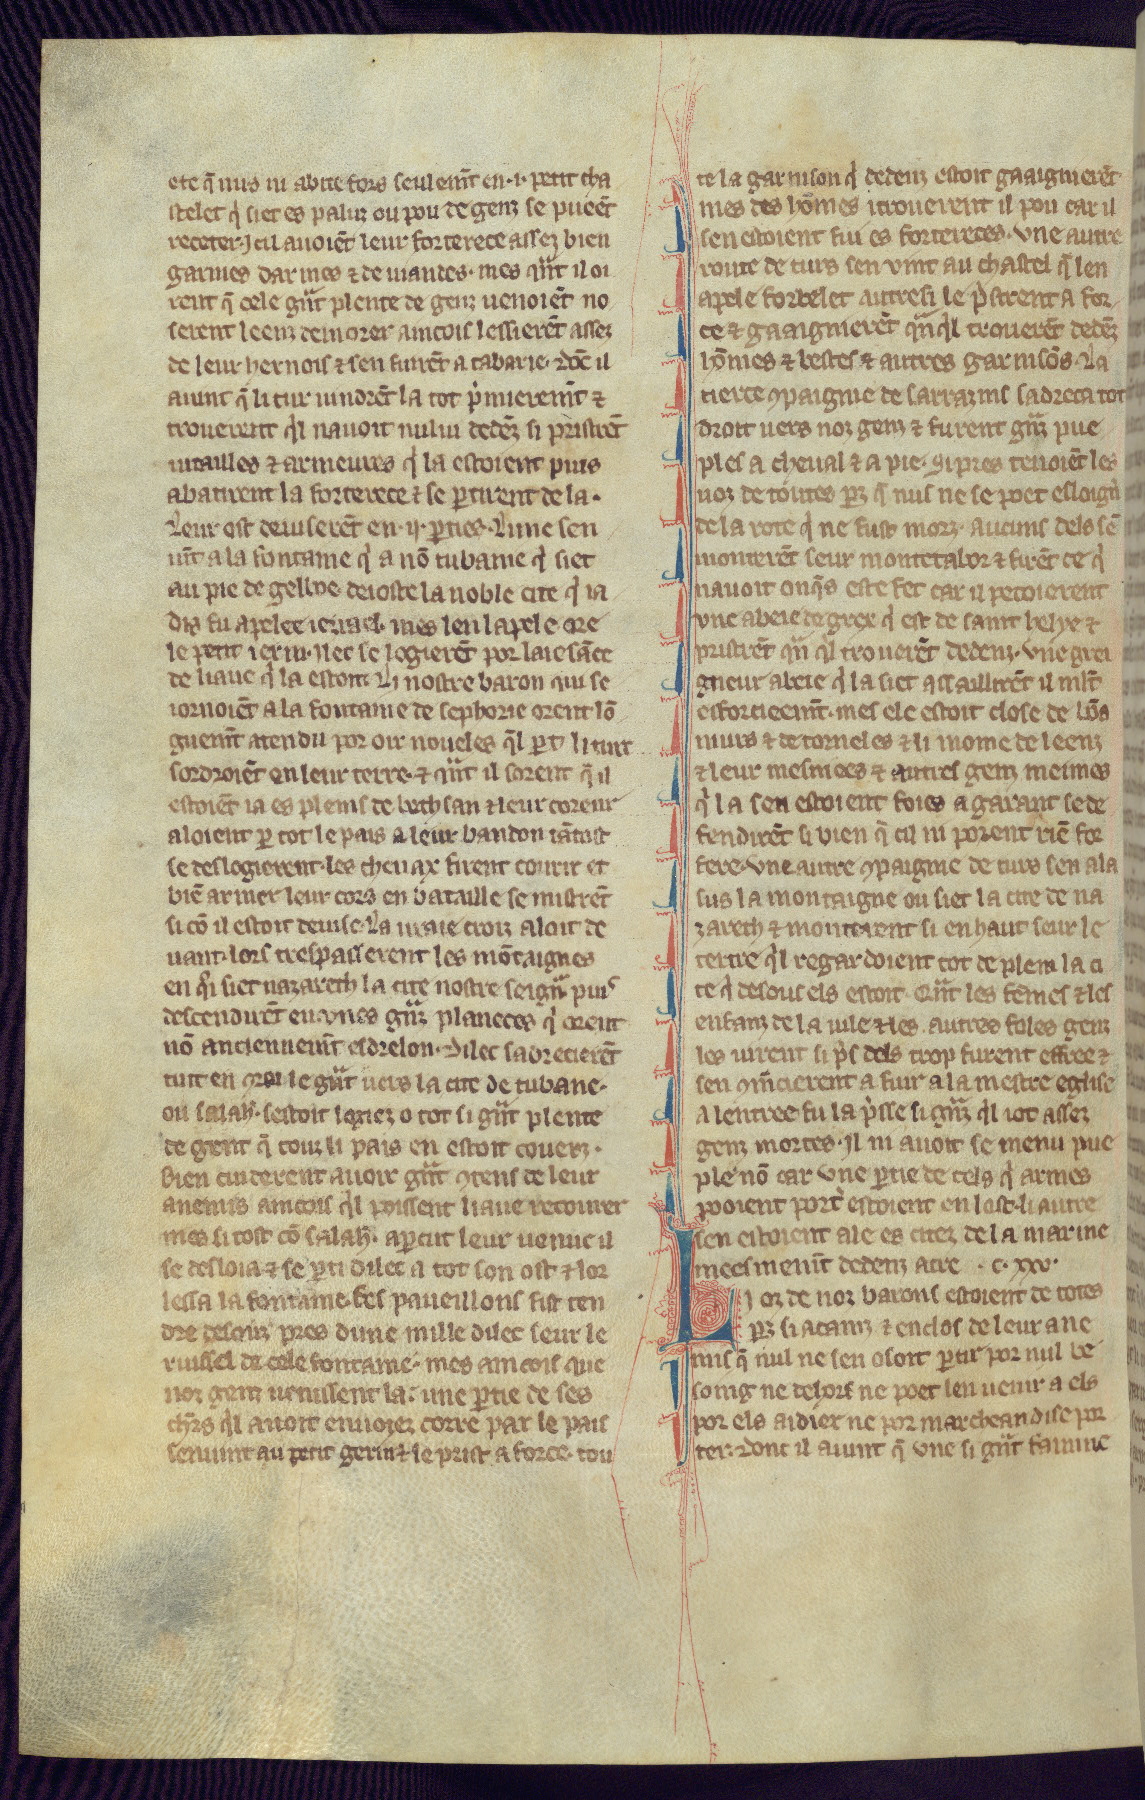 ete q̄ nus ni abite fors seulem̄t en .i. petit cha
stelet q̇ siet es paluz ou pou de genz se pueēt
receter. Icil avoiēt leur forterece assez bien
garnies darmes ⁊ de viandes. mes qn̄t il oi
rent q̄ cele gn̄t plente de genz venoiēt no
serent leenz demorer aincois lessierēt assez
de leur hernois ⁊ sen furēt a tabarie. dōc il
avint q̄ li tur vindrēt la tot ṗmierem̄t ⁊
trouverent q̇l navoit nului dedēz si pristrēt
vitailles ⁊ armeures q̇ la estoient puis
abatirent la forterece ⁊ se p̱tirent de la.
Leur ost deviserēt en .ij. p̱ties. Lune sen
vīt a la fontaine q̇ a nō tubanie q̇ siet
au pie de gelboe. dejoste la noble cite q̇ ia
dis fu apelee iezrael. mes len lapele ore
le petit gerin. Ilec se logierēt por laiesāce
de liaue q̇ la estoit. Li nostre baron qui se
iornoiēt a la fontaine de sephorie orent lō
guem̄t atendu por oir noveles q̇l p̱t li turc
sordroiēt en leur terre. ⁊ qn̄t il sorent q̄ il
estoiēt ia es plains de bethsan ⁊ leur coreur
aloient p̱ tot le pais a leur bandon tātost
se deslogierent. les chevax firent covrir et
biē armer leur cors en bataille se mistrēt
si cō il estoit devise. La vraie croiz aloit de
vant. lors trespasserent les mōtaignes
en q̇i siet nazareth la cite nostre seignr̄ puis
descendirēt en unes gn̄z planeces q̇ orent
nō anciennem̄t esdrelon. Dilec sadrecierēt
tuit en 9roi le gn̄t vers la cite de tubane.
ou salah̄. sestoit logiez o tot si gn̄t plente
de gent q̄ touz li pais en estoit coverz.
Bien cuiderent avoir gn̄t 9tens de leur
anemis aincois q̇l poissent liaue recovrer
mes si tost cō salah̄. ap̱cut leur venue il
se desloia ⁊ se p̱ti dilec a tot son ost ⁊ lor
lessa la fontaine. Ses paveillons fist ten
dre desouz pres dune mille dilec seur le
ruissel de cele fontaine. mes aincois que
noz gent venissent la. une p̱tie de ses
ch̄rs q̇l avoit envoiez corre par le pais
senvint au petit gerin ⁊ le prist a force. tou
te la garnison q̇ dedenz estoit gaaignierēt
mes des hōmes i trouverent il pou car il
sen estoient fui es fortereces. Une autre
route de turs sen vint au chastel q̄ len
apele forbelet autresi le ṗstrent a for
ce ⁊ gaaignierēt qn̄q̇l trouverēt dedēz
hōmes ⁊ bestes ⁊ autres garnisōs. La
tierce 9paignie de sarrazins sadreca tot
droit vers noz genz ⁊ furent gn̄z pue
ples a cheval ⁊ a pie. si pres tenoiēt les
noz de toutes p̱z q̄ nus ne se poet esloign̄
de la rote q̇ ne fust morz. aucuns dels sē
monterēt seur montetabor ⁊ firēt ce q̇
navoit onq̄s este fet car il pecoierent
une abeie de grex q̇ est de saint helye ⁊
pristrēt qn̄ q̇l trouverēt dedenz. Une grei
gneur abeie q̇ la siet assaillirēt il ml̄t
esforcieem̄t. mes ele estoit close de bōs
murs ⁊ de torneles ⁊ li moine de leenz
⁊ leur mesniees ⁊ autres genz meimes
q̇ la sen estoient foies a garant se de
fendirēt si bien q̄ cil ni porent riē for
fere. Une autre 9paignie de turs sen ala
sus la montaigne ou siet la cite de na
zareth ⁊ monterent si en haut seur le
tertre q̇l regardoient tot de plein la ci
te q̇ desouz els estoit. Qn̄t les fēmes ⁊ les
enfanz de la vile ⁊ les autres foles genz
les virent si p̄s dels trop furent effree ⁊
sen 9mēcierent a fuir a la mestre eglise
A lentree fu la p̄sse si gn̄z q̇l i ot assez
genz mortes. Il ni avoit se menu pue
ple nō car une p̱tie de cels q̇ armes
pooient port̄ estoient en lost. li autre
sen estoient ale es citez de la marine
meesmem̄t dedenz acre .c. xxv.
Li oz de noz barons estoient de totes
p̱z si ataint ⁊ enclos de leur ane
mis q̄ nul ne sen osoit p̱tir por nul be
soing ne dehors ne poet len venir a els
por els aidier ne por marcheandise por
ter. dont il avint q̄ une si gn̄t famine